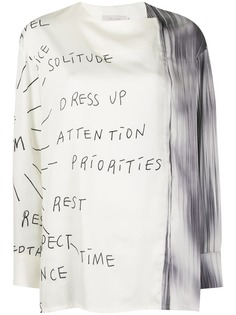 AVEL
ICE
SOLITUDE
DRESS UP
ATTENTION
M
PRIORITIES
REST
RES
PECT
EDTA
TIME
NCE
S